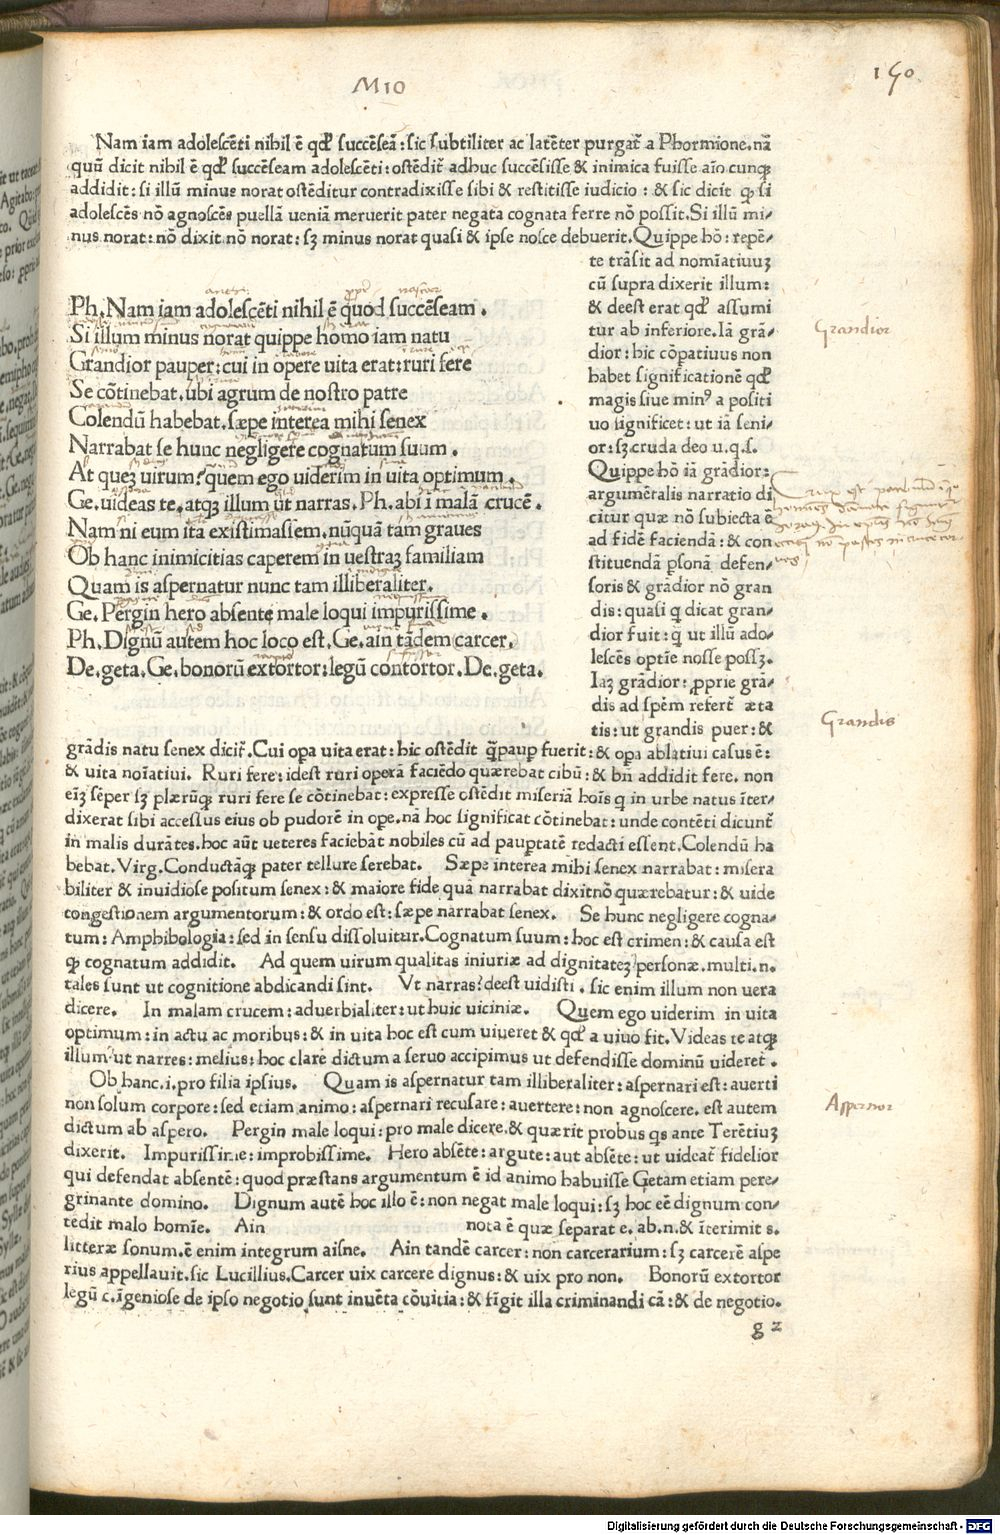 MIO
150
Nam iam adolescēti nihil ē qd̄ succēseā: sic subtiliter ac latēter purgat̄ a Phormione. nā
quū dicit nihil ē qd̄ succēseam adolescēti: ostēdit̄ adhuc succēsisse & inimica fuisse aīo cunqȝ
addidit: si illū minus norat ostēditur contradixisse sibi & restitisse iudicio : & sic dicit qȝ si
adolescēs nō agnoscēs puellā ueniā meruerit pater negata cognata ferre nō possit. Si illū mi-
nus norat: nō dixit nō norat: sȝ minus norat quasi & ipse nosce debuerit. Quippe hō: repē-
te trāsit ad nomīatiuuȝ
cū supra dixerit illum:
& deest erat qd̄ assumi
tur ab inferiore. Iā grā-
dior: hic cōpatiuus non
habet significationē qd̄
magis siue minꝰ a positi
uo significet: ut iā seni-
or: sȝ cruda deo u.q.s.
Quippe hō iā grādior:
argumētalis narratio di
citur quæ nō subiecta ē
ad fidē faciendā: & con
stituendā psonā defen-
soris & grādior nō gran
dis: quasi q dicat gran-
dior fuit: q ut illū ado-
lescēs optīe nosse possȝ.
Iaȝ grādior: pprie grā-
dis ad spēm refert̄ æta
tis: ut grandis puer: &
Ph. Nam iam adolescēti nihil ē quod succēseam .
Si illum minus norat quippe homo iam natu
Grandior pauper: cui in opere uita erat: ruri fere
Se cōtinebat. ubi agrum de nostro patre
Colendū habebat. sæpe interea mihi senex
Narrabat se hunc negligere cognatum suum .
At queȝ uirum? quem ego uiderim in uita optimum .
Ge. uideas te. atqȝ illum ut narras. Ph. abi ī malā crucē .
Nam ni eum ita existimassem. nūquā tam graues
Ob hanc inimicitias caperem in uestraȝ familiam
Quam is aspernatur nunc tam illiberaliter.
Ge. Pergin hero absente male loqui impurissime .
Ph. Dignū autem hoc loco est. Ge. ain tādem carcer.
De. geta. Ge. bonorū extortor: legū contortor. De. geta.
Grandior
Grandis
grādis natu senex dicit̄. Cui opa uita erat: hic ostēdit q̄paup fuerit: & opa ablatiui casus ē:
& uita noīatiui. Ruri fere: idest ruri operā faciēdo quærebat cibū: & bn̄ addidit fere. non
eīȝ sēper sȝ plærūqȝ ruri fere se cōtinebat: expresse ostēdit miseriā hoīs q in urbe natus īter-
dixerat sibi accessus eius ob pudorē in ope. nā hoc significat cōtinebat: unde contēti dicunt̄
in malis durātes. hoc aūt ueteres faciebāt nobiles cū ad pauptatē redacti essent. Colendū ha
bebat. Virg. Conductāqȝ pater tellure serebat. Sæpe interea mihi senex narrabat: misera
biliter & inuidiose positum senex: & maiore fide quā narrabat dixitnō quærebatur: & uide
congestionem argumentorum: & ordo est: sæpe narrabat senex. Se hunc negligere cogna-
tum: Amphibologia: sed in sensu dissoluitur. Cognatum suum: hoc est crimen: & causa est
qȝ cognatum addidit. Ad quem uirum qualitas iniuriæ ad dignitateȝ personæ. multi. n.
tales sunt ut cognitione abdicandi sint. Vt narras? deest uidisti . sic enim illum non uera
dicere. In malam crucem: aduerbialiter: ut huic uiciniæ. Quem ego uiderim in uita
optimum: in actu ac moribus: & in uita hoc est cum uiueret & qd̄ a uiuo fit. Videas te atqȝ
illum ut narres: melius: hoc clare dictum a seruo accipimus ut defendisse dominū uideret̄ .
Ob hanc .i. pro filia ipsius. Quam is aspernatur tam illiberaliter: aspernari est: auerti
non solum corpore: sed etiam animo: aspernari recusare: auertere: non agnoscere. est autem
dictum ab aspero. Pergin male loqui: pro male dicere. & quærit probus qs ante Terētiuȝ
dixerit. Impurissime: improbissime. Hero absēte: argute: aut absēte: ut uideat̄ fidelior
qui defendat absentē: quod præstans argumentum ē id animo habuisse Getam etiam pere-
grinante domino. Dignum autē hoc illo ē: non negat male loqui: sȝ hoc eē dignum con-
tēdit malo homīe. Ain nota ē quæ separat e. ab. n. & īterimit s.
litteræ sonum. ē enim integrum aisne. Ain tandē carcer: non carcerarium: sȝ carcerē aspe
rius appellauit. sic Lucillius. Carcer uix carcere dignus: & uix pro non. Bonorū extortor
legū c. īgeniose de ipso negotio sunt inuēta cōuitia: & fīgit illa criminandi cā: & de negotio.
Aspernor
g 2
Digitalisierung gefördert durch die Deutsche Forschungsgemeinschaft - DFG